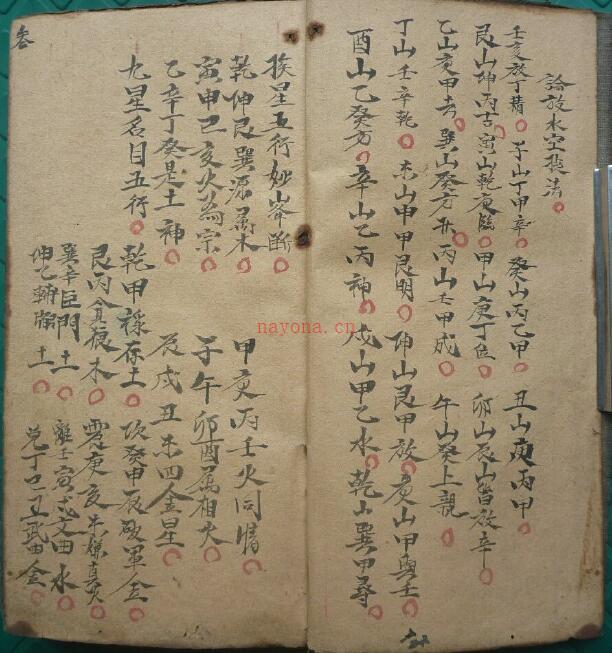 論放水定法
壬亥放丁積 子山丁甲辛 癸山丙乙甲 丑山庚丙甲
艮山坤丙吉 寅山乾庚臨 甲山庚丁位 卯山辰山皆放辛
乙山亥甲去 巽山癸方升 丙山壬甲成 午山癸上親
丁山壬辛乾 未山申甲艮明 坤山艮甲放 庚山甲與壬
酉山乙癸方 辛山乙丙神 戌山甲乙水 乾山巽甲尋
挨星五行妙山峯断
乾坤艮巽源属木 甲庚丙壬火同情
寅申巳亥火為宗 子午卯酉属相火
乙辛丁癸是土神 辰戌丑未四金星
九星名目五行 乾甲祿存土 坎癸申辰破軍金
艮丙貪狼木 震庚亥未廉貞火
巽辛巨門土 離壬寅戌文曲水
坤乙輔弼土 兌丁巳丑武曲金
nayona.cn